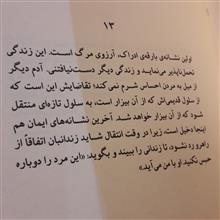 ۱۳
اولین نشانه‌ی بارقه‌ی ادراک، آرزوی مرگ است. این زندگی
تحمل‌ناپذیر می‌نماید و زندگی دیگر دست‌نیافتنی. آدم دیگر
از میل به مردن احساس شرم نمی‌کند؛ تقاضایش این است که
از سلول قدیمی‌اش که از آن بیزار است، به سلول تازه‌ای منتقل
شود که از آن بیزار خواهد شد. آخرین نشانه‌های ایمان هم
اینجا دخیل است، زیرا در وقت انتقال شاید زندانبان اتفاقاً از
راهرو رد شود، تا زندانی را ببیند و بگوید: «این مرد را دوباره
حبس نکنید او با من می‌آید»